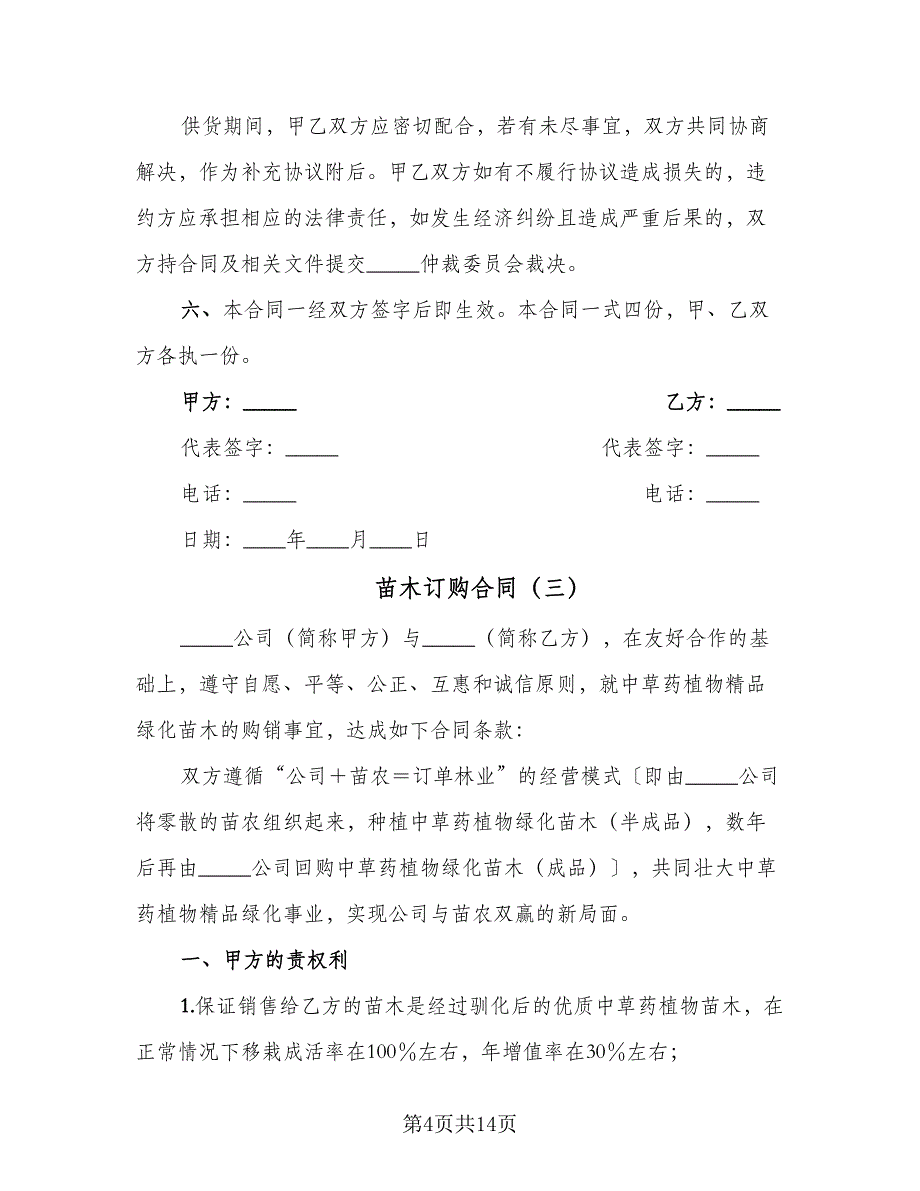 供货期间，甲乙双方应密切配合，若有未尽事宜，双方共同协商
解决，作为补充协议附后。甲乙双方如有不履行协议造成损失的，违
约方应承担相应的法律责任，如发生经济纠纷且造成严重后果的，双
方持合同及相关文件提交_____仲裁委员会裁决。
六、本合同一经双方签字后即生效。本合同一式四份，甲、乙双
方各执一份。
甲方：_____ 乙方：_____
代表签字：_____ 代表签字：_____
电话：_____ 电话：_____
日期：____年____月____日
苗木订购合同（三）
_____公司（简称甲方）与_____（简称乙方），在友好合作的基
础上，遵守自愿、平等、公正、互惠和诚信原则，就中草药植物精品
绿化苗木的购销事宜，达成如下合同条款：
双方遵循“公司＋苗农＝订单林业”的经营模式〔即由_____公司
将零散的苗农组织起来，种植中草药植物绿化苗木（半成品），数年
后再由_____公司回购中草药植物绿化苗木（成品）〕，共同壮大中草
药植物精品绿化事业，实现公司与苗农双赢的新局面。
一、甲方的责权利
1.保证销售给乙方的苗木是经过驯化后的优质中草药植物苗木，在
正常情况下移栽成活率在100％左右，年增值率在30％左右；
第4页共14页